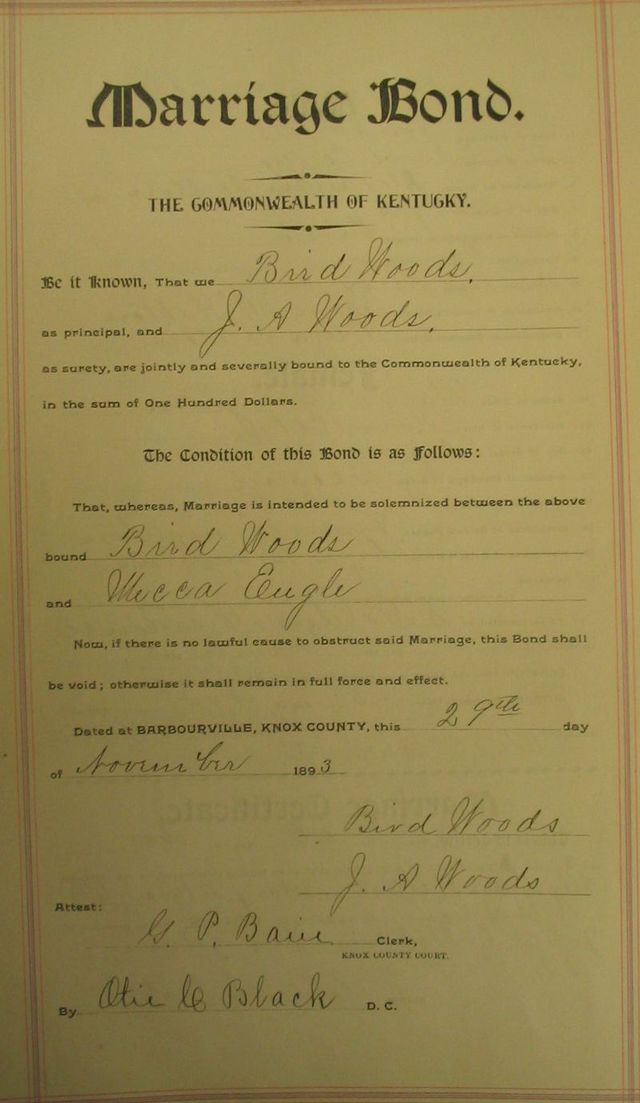 Marriage Bond.
THE COMMONWEALTH OF KENTUCKY.
Be it Known, That we Bird Woods,
as principal, and J. A Woods,
as surety, are jointly and severally bound to the Commonwealth of Kentucky,
in the sum of One Hundred Dollars.
The Condition of this Bond is as Follows:
That, whereas, Marriage is intended to be solemnized between the above
bound Bird Woods
and Mecca Engle
Now, if there is no lawful cause to obstruct said Marriage, this Bond shall
be void; otherwise it shall remain in full force and effect.
Dated at BARBOURVILLE, KNOX COUNTY, this 29th day
of November 1893
Bird Woods
J. A Woods
Attest:
G. P. Clerk,
KNOX COUNTY COURT.
By Black D. C.